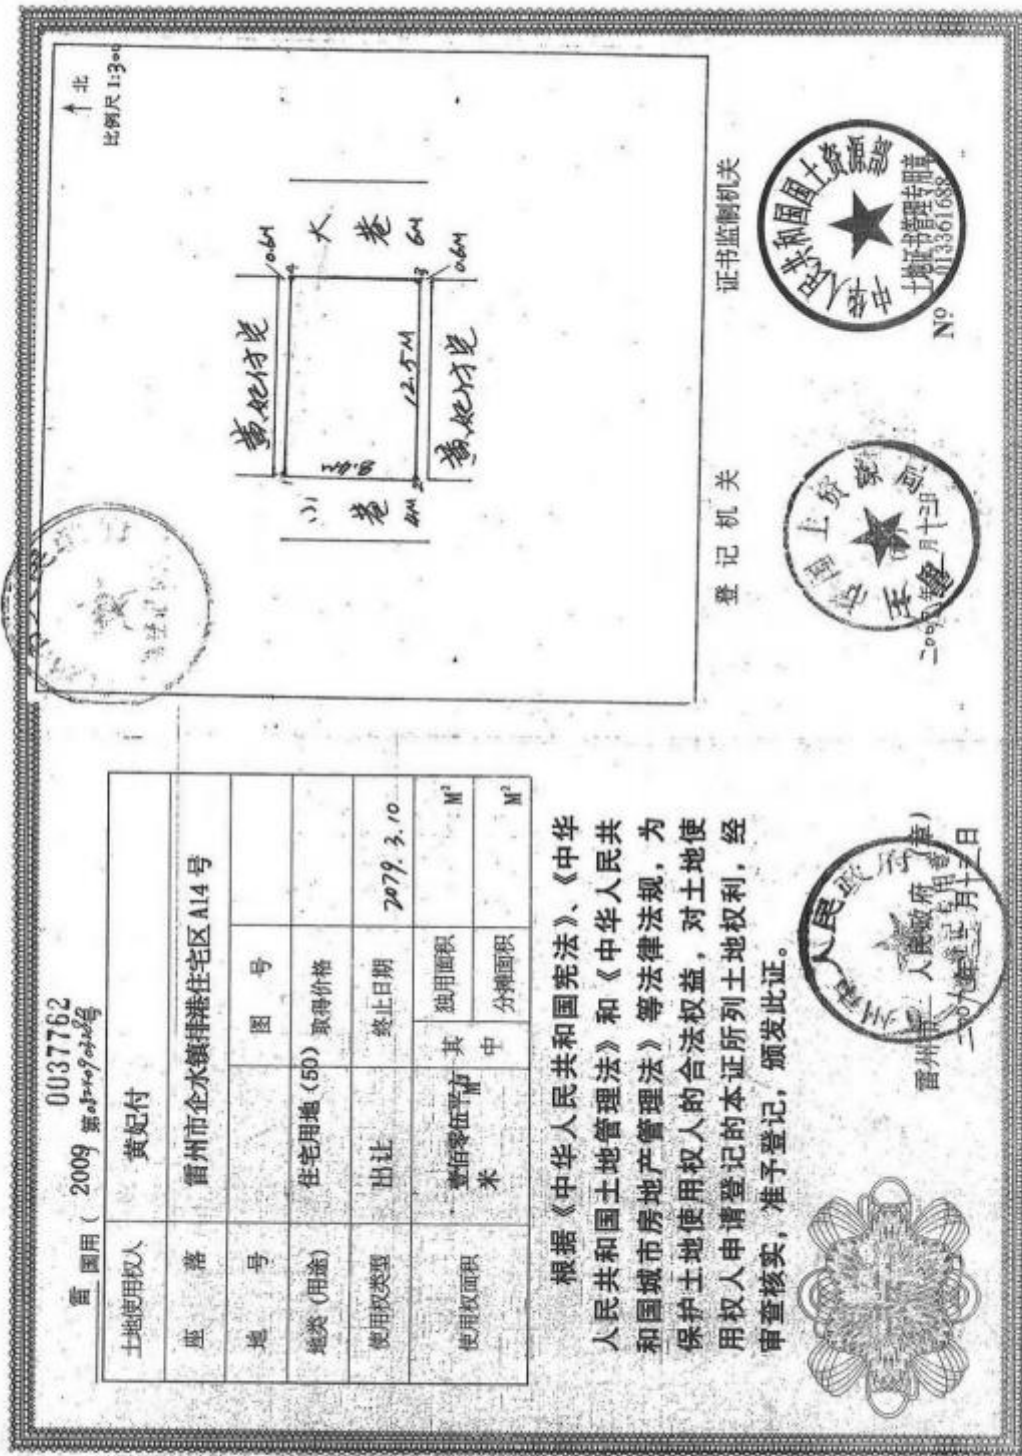 0037762
雷 国用( 2009 第
土地使用权人 黄妃付
座 落 雷州市企水镇排港住宅区 A14 号
地 号 图 号
地类(用途) 住宅用地(50) 取得价格
使用权类型 出让 终止日期 2079.3.10
使用权面积 壹佰零伍平方米 M² 其中 独用面积 M²
分摊面积 M²
根据《中华人民共和国宪法》、《中华
人民共和国土地管理法》和《中华人民共
和国城市房地产管理法》等法律法规,为
保护土地使用权人的合法权益,对土地使
用权人申请登记的本证所列土地权利,经
审查核实,准予登记,颁发此证。
雷州市 人民政府(章)
二00九年 月十三日
北
比例尺 1:300
黄妃付宅
0.6M
1
4
小巷
4M
8.4M
大巷
6M
12.5M
2
3
0.6M
黄妃付宅
登 记 机 关
市国土资源局
月十三日
证书监制机关
中华人民共和国国土资源部
土地证书管理专用章
Nº 013361688